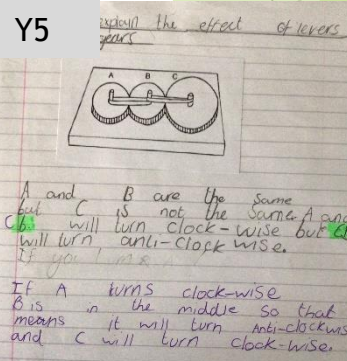 Y5
explain the effect of levers
gears
A B C
A and B are the same
but C is not the same A and
C will turn clock-wise but
will turn anti-clock wise.
If you
If A turns clock-wise
B is in the middle so that
means it will turn Anti-clockwis
and C will turn clock-wise.